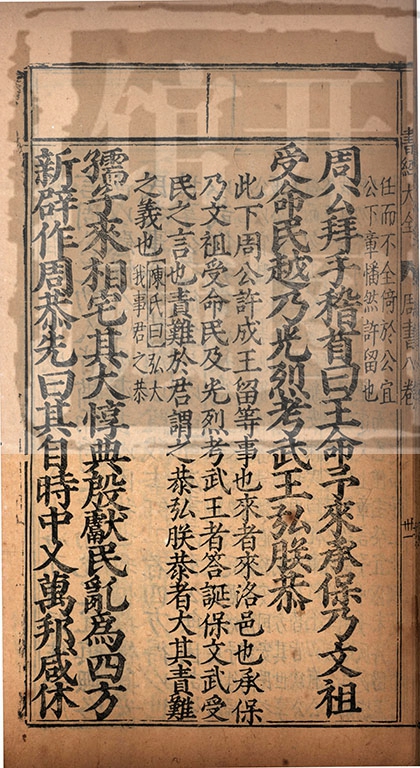 任而不全倚於公宜
公下章憣然許留也
周公拜手稽首曰王命予來承保乃文祖
受命民越乃光烈考武王弘朕恭
此下周公許成王留等事也來者來洛邑也承保
乃文祖受命民及光烈考武王者答誕保文武受
民之言也責難於君謂之恭弘朕恭者大其責難
之義也
陳氏曰弘大
我事君之恭
孺子來相宅其大惇典殷獻民亂為四方
新辟作周恭先曰其自時中乂萬邦咸休